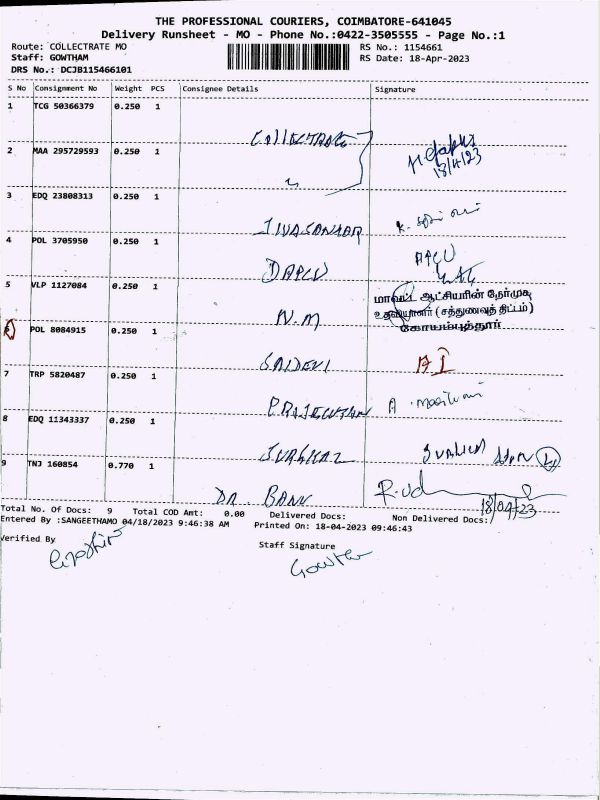 THE PROFESSIONAL COURIERS, COIMBATORE-641045
Delivery Runsheet - MO - Phone No.:0422-3505555 - Page No.:1
Route: COLLECTRATE MO
Staff: GOWTHAM
DRS No.: DCJB115466101
RS No.: 1154661
RS Date: 18-Apr-2023
S No Consignment No Weight PCS Consignee Details Signature
1 TCG 50366379 0.250 1
COLLECTRATE
2 MAA 295729593 0.250 1
18/4/23
3 EDQ 23808313 0.250 1
4 POL 3705950 0.250 1
DAPCU
5 VLP 1127084 0.250 1
N.M
மாவட்ட ஆட்சியரின் நேர்முக
உதவியாளர் (சத்துணவுத் திட்டம்)
கோயம்புத்தூர்
6 POL 8084915 0.250 1
SAIDEVI
7 TRP 5820487 0.250 1
8 EDQ 11343337 0.250 1
9 TNJ 160854 0.770 1
DR. BANU
18/04/23
Total No. Of Docs: 9 Total COD Amt: 0.00 Delivered Docs: Non Delivered Docs:
Entered By :SANGEETHAMO 04/18/2023 9:46:38 AM Printed On: 18-04-2023 09:46:43
Verified By
Staff Signature
Gowtham